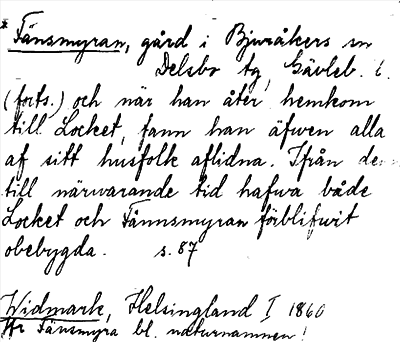 * Fänsmyran, gård i Bjuråkers sn
Delsbo tg, Gävleb. l.
(forts.) och när han åter hemkom
till Locket, fann han äfwen alla
af sitt husfolk aflidna. Ifrån de
till närwarande tid hafwa både
Locket och Fännsmyran förblifwit
obebygda. s. 87
Widmark, Helsingland I 1860
Hr Fänsmyra bl. naturnamnen!